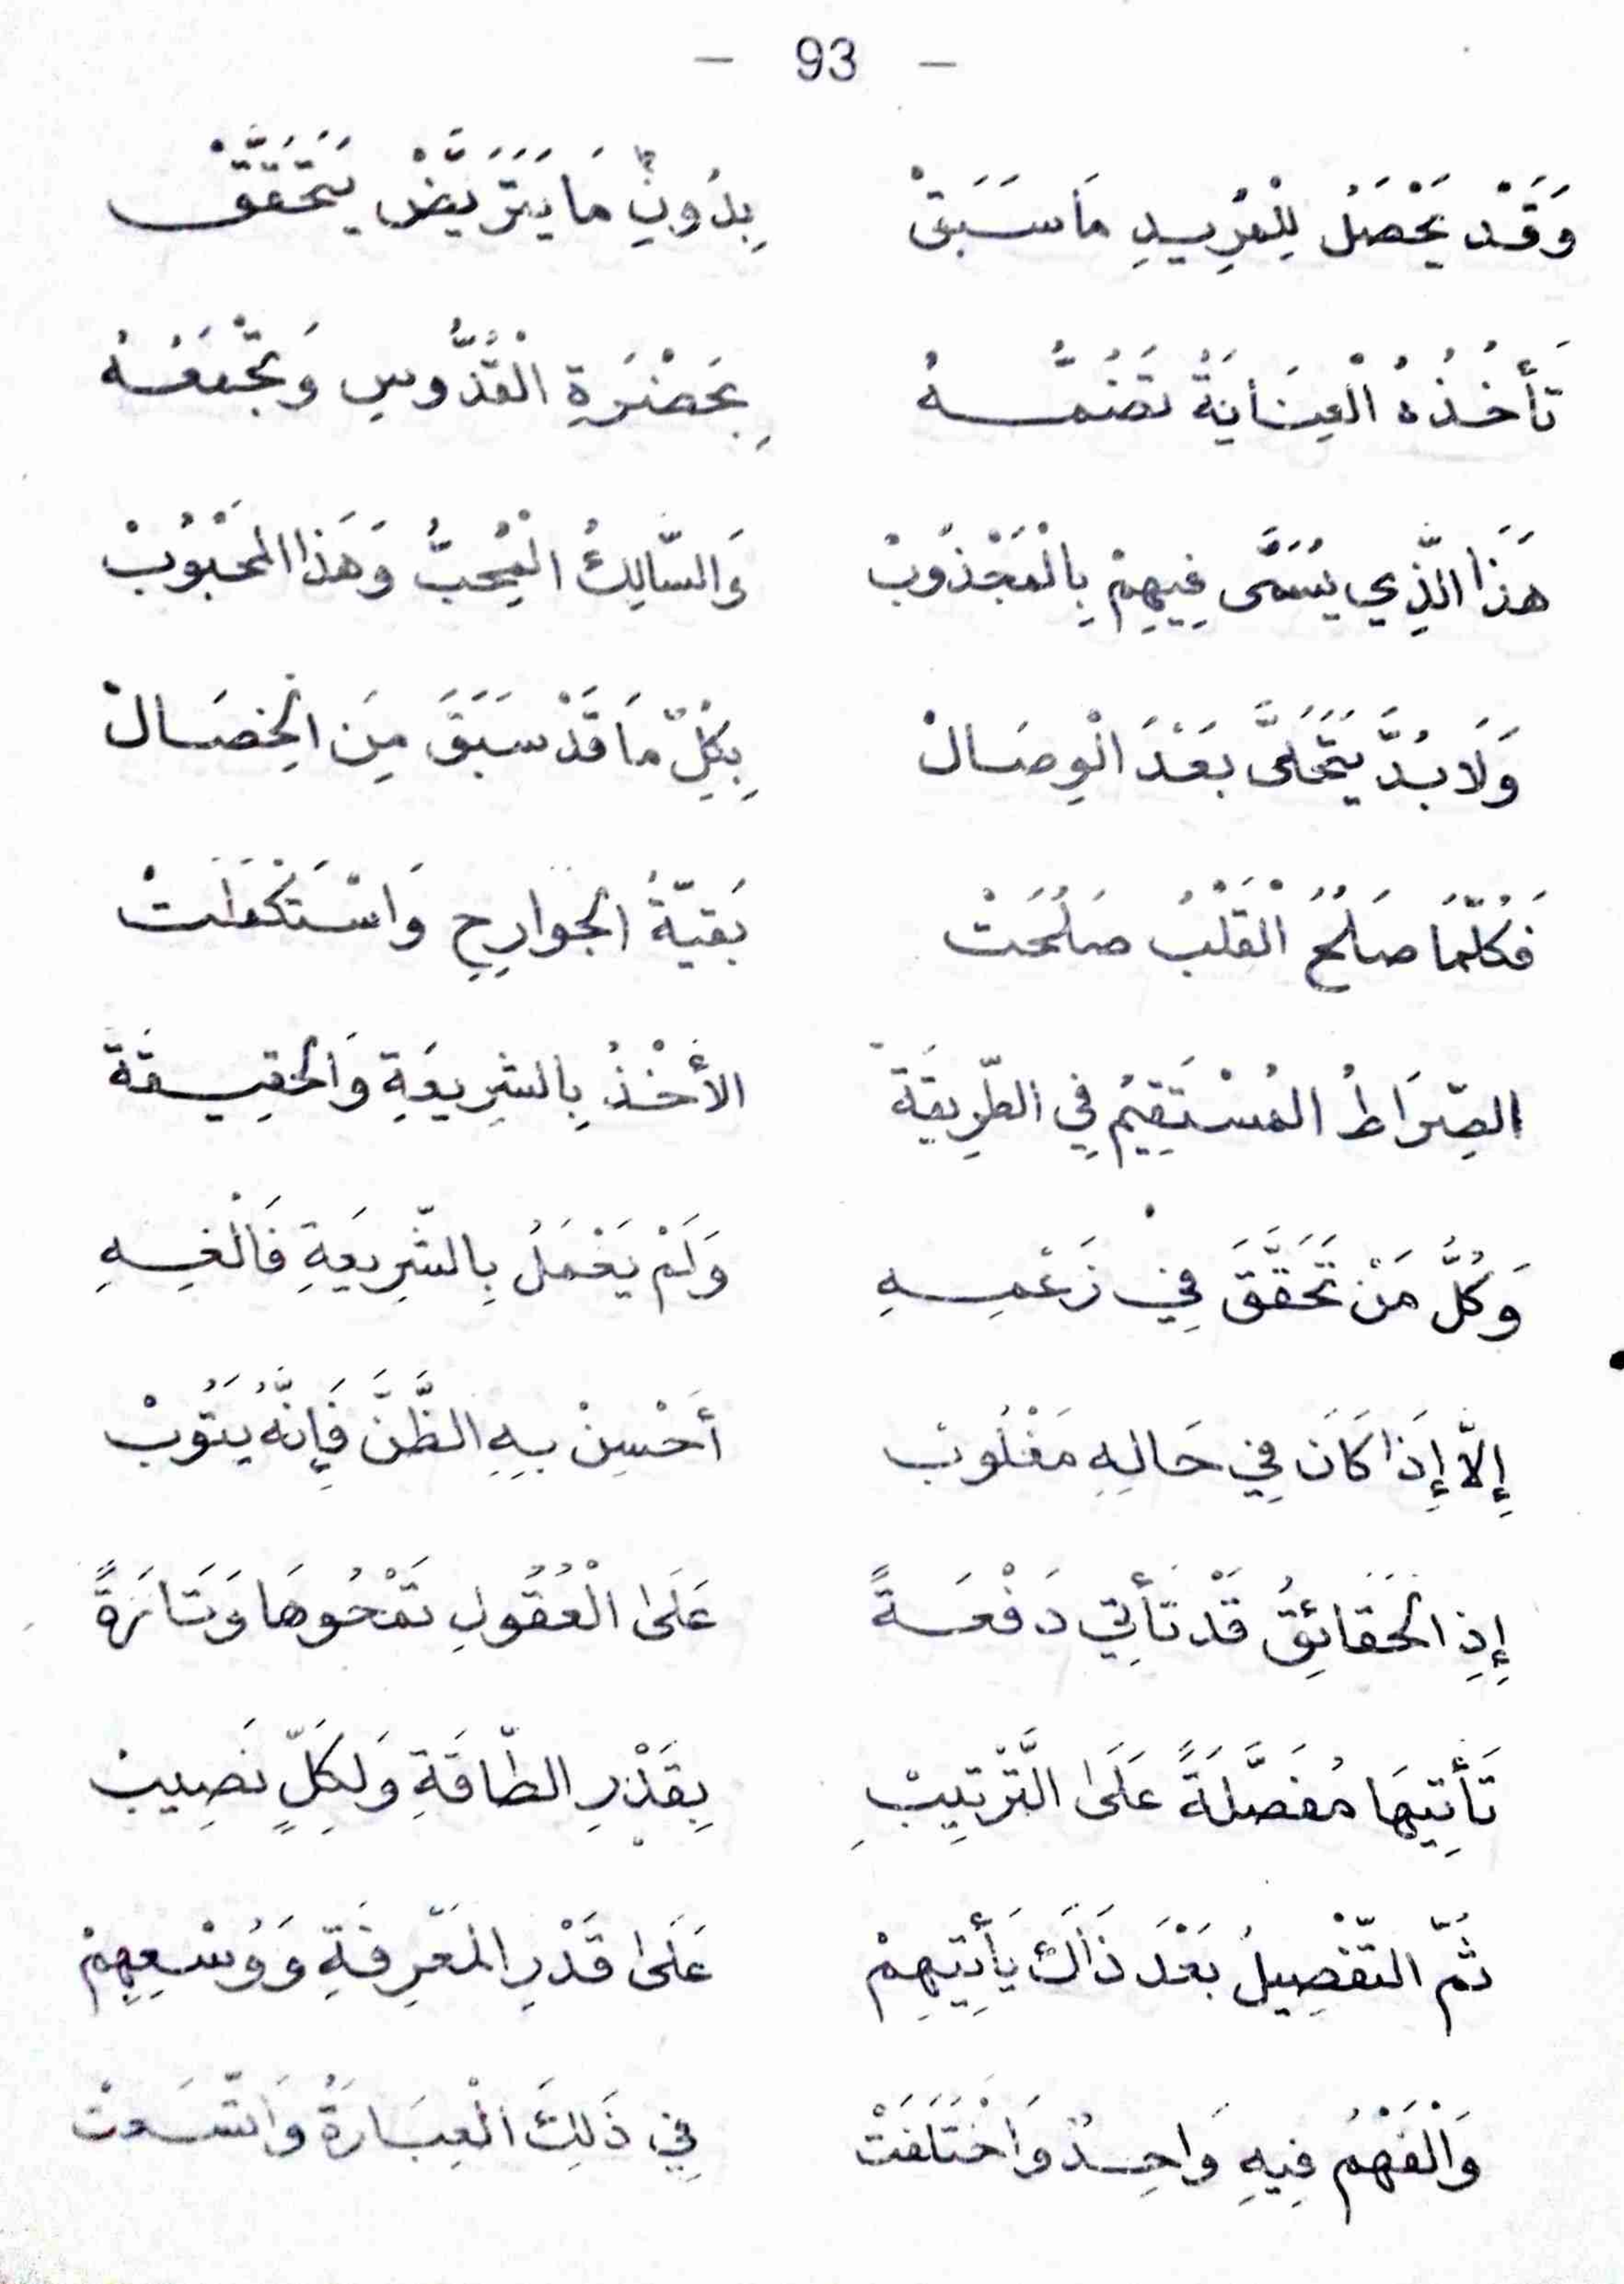 - 93 -
وَقَدْ يَحْصَلُ لِلْمُرِيدِ مَا سَبَقْ بِدُونِ مَا يَتَرَيَّضْ يَتَحَقَّقْ
تَأْخُذُهُ الْعِنَايَةُ تَضُمُّهُ بِحَضْرَةِ الْقُدُّوسِ وَتَجْمَعُهُ
هَذَا الَّذِي يُسَمَّى فِيهِمْ بِالْمَجْذُوبْ وَالسَّالِكُ الْمُحِبُّ وَهَذَا الْمَحْبُوبْ
وَلَا بُدَّ يَتَحَلَّى بَعْدَ الْوِصَالْ بِكُلِّ مَا قَدْ سَبَقَ مِنَ الْخِصَالْ
فَكُلَّمَا صَلُحَ الْقَلْبُ صَلُحَتْ بَقِيَّةُ الجوارِحِ وَاسْتَكْمَلَتْ
الصِّرَاطُ المُسْتَقِيمُ فِي الطَّرِيقَةَ الأَخْذُ بِالشرِيعَةِ وَالحَقِيقَةَ
وَكُلُّ مَنْ تَحَقَّقَ فِي زَعْمِهِ وَلَمْ يَعْمَلُ بِالشَّرِيعَةِ فَالْغِهِ
إِلَّا إِذَا كَانَ فِي حَالِهِ مَغْلُوبْ أَحْسِنْ بِهِ الظَّنَّ فَإِنَّهُ يَتُوبْ
إِذِ الْحَقَائِقُ قَدْ تَأْتِي دَفْعَةً عَلَى الْعُقُولِ تَمْحُوهَا وَتَارَةً
تَأْتِيهَا مُفَصَّلَةً عَلَى التَّرْتِيبِ بِقَدْرِ الطَّاقَةِ وَلِكُلٍّ نَصِيبْ
ثُمَّ التَّفْصِيلُ بَعْدَ ذَاكَ يَأْتِيهِمْ عَلَى قَدْرِ المَعْرِفَةِ وَوُسْعِهِمْ
وَالْفَهْمُ فِيهِ وَاحِدٌ وَاخْتَلَفَتْ فِي ذَلِكَ الْعِبَارَةُ وَاتَّسَعَتْ